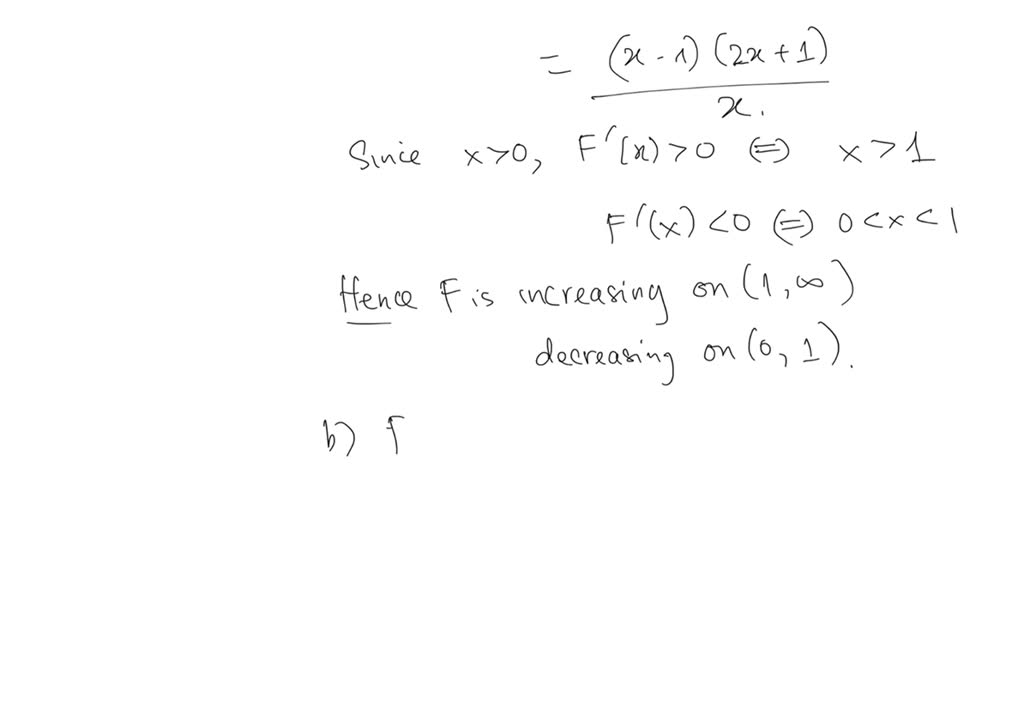 = (x - 1) (2x + 1)
x.
Since x > 0, F'(x) > 0 ⇔ x > 1
F'(x) < 0 ⇔ 0 < x < 1
Hence F is increasing on (1, ∞)
decreasing on (0, 1).
b) F